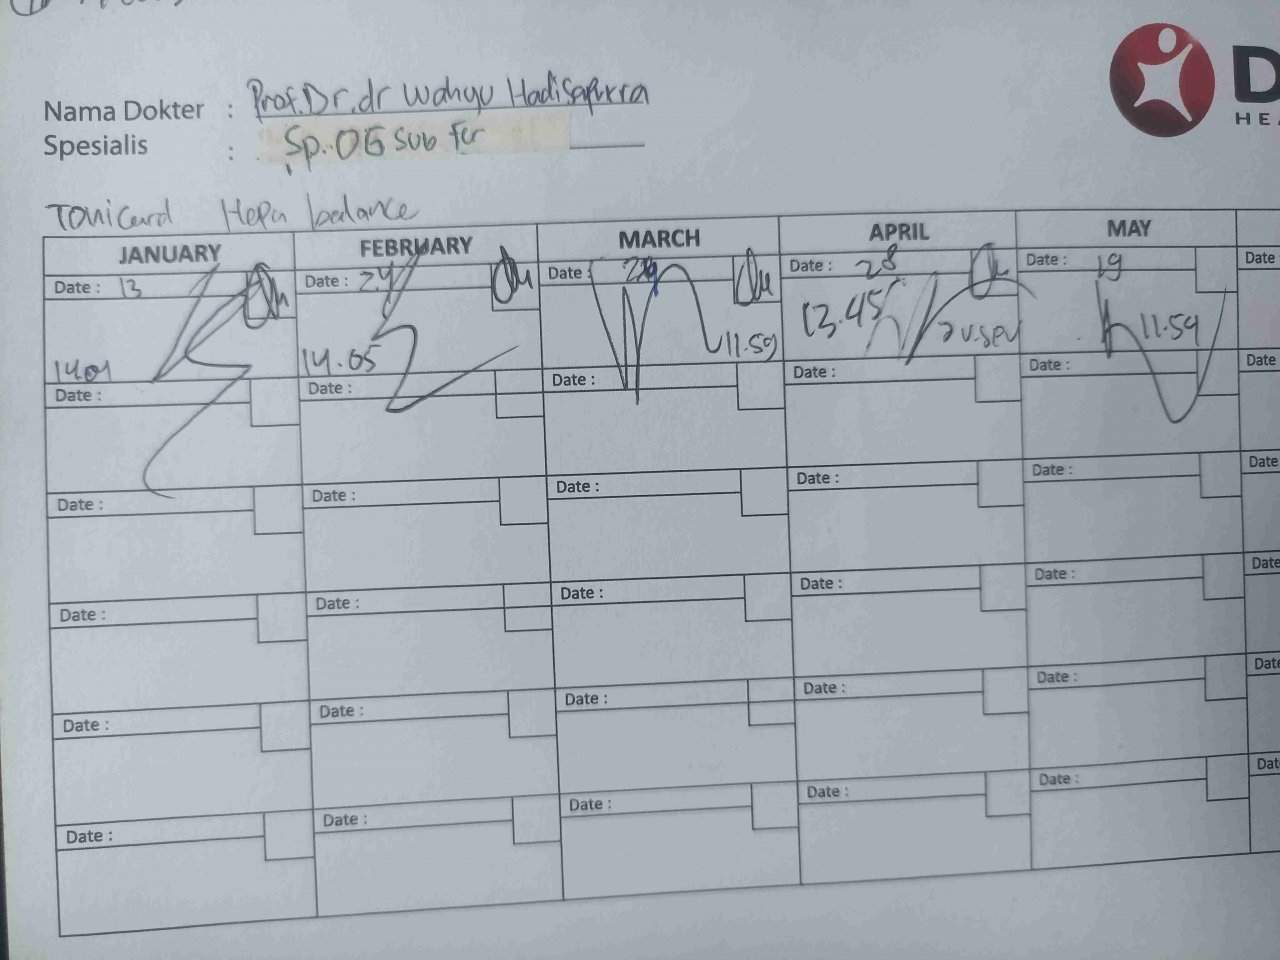 Nama Dokter : Prof. Dr. dr Wahyu Hadisaputra
Spesialis : Sp. OG sub Fer
Tonicard Hepa balance
JANUARY FEBRUARY MARCH APRIL MAY
Date : 13 Date : 24 Date : Date : 28 Date : 19 Date
14.01 14.05 11.59 13.45 11.59
Date : Date : Date : Date : Date : Date
Date : Date : Date : Date : Date : Date
Date : Date : Date : Date : Date : Date
Date : Date : Date : Date : Date : Date
Date : Date : Date : Date : Date : Dat